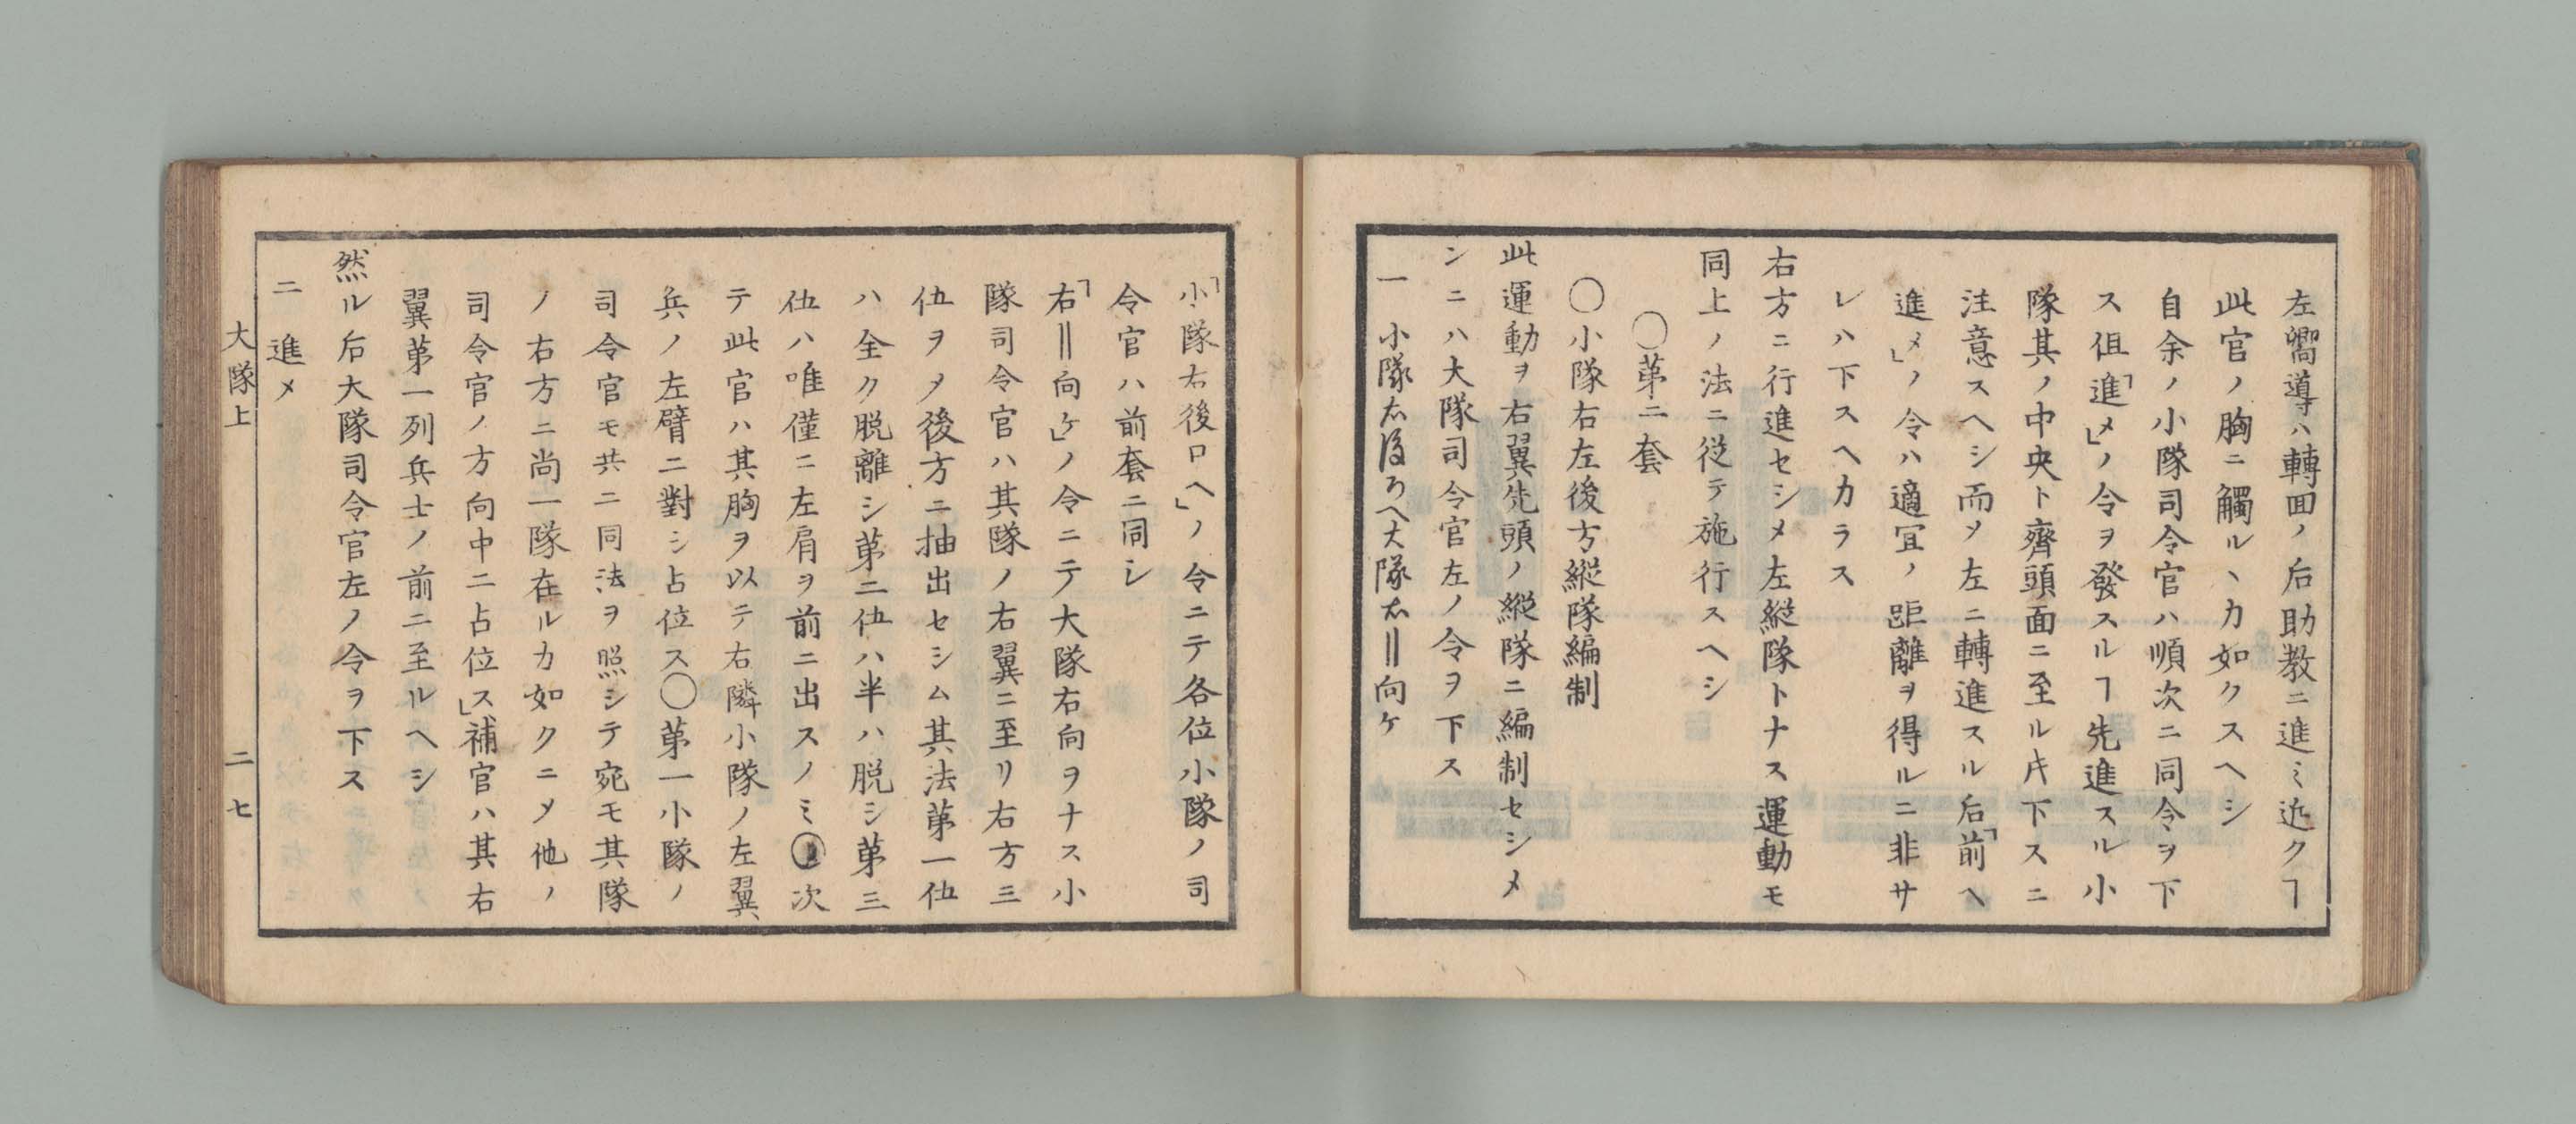 左嚮導ハ轉回ノ后助教ニ進ミ近クヿ
此官ノ胸ニ觸ルヽカ如クスヘシ
自余ノ小隊司令官ハ順次ニ同令ヲ下
ス但「進メ」ノ令ヲ發スルヿ先進スル小
隊其ノ中央ト齊頭面ニ至ルキ下スニ
注意スヘシ而ヲ左ニ轉進スル后「前ヘ
進メ」ノ令ハ適冝ノ距離ヲ得ルニ非サ
レハ下スヘカラス
右方ニ行進セシメ左縦隊トナス運動モ
同上ノ法ニ従テ施行スヘシ
〇第二套
〇小隊右左後方縦隊編制
此運動ヲ右翼先頭ノ縦隊ニ編制セシメ
ンニハ大隊司令官左ノ令ヲ下ス
一 小隊右後ろへ大隊右‖向ケ
「小隊右後ロヘ」ノ令ニテ各位小隊ノ司
令官ハ前套ニ同シ
「右‖向ケ」ノ令ニテ大隊右向ヲナス小
隊司令官ハ其隊ノ右翼ニ至リ右方三
伍ヲメ後方ニ抽出セシム其法第一伍
ハ全ク脱離シ第二伍ハ半ハ脱シ第三
伍ハ唯僅ニ左肩ヲ前ニ出スノミ次
テ此官ハ其胸ヲ以テ右隣小隊ノ左翼
兵ノ左臂ニ對シ占位ス〇第一小隊ノ
司令官モ共ニ同法ヲ照シテ宛モ其隊
ノ右方ニ尚一隊在ルカ如クニメ他ノ
司令官ノ方向中ニ占位ス」補官ハ其右
翼第一列兵士ノ前ニ至ルヘシ
然ル后大隊司令官左ノ令ヲ下ス
二 進メ
大隊上 二七